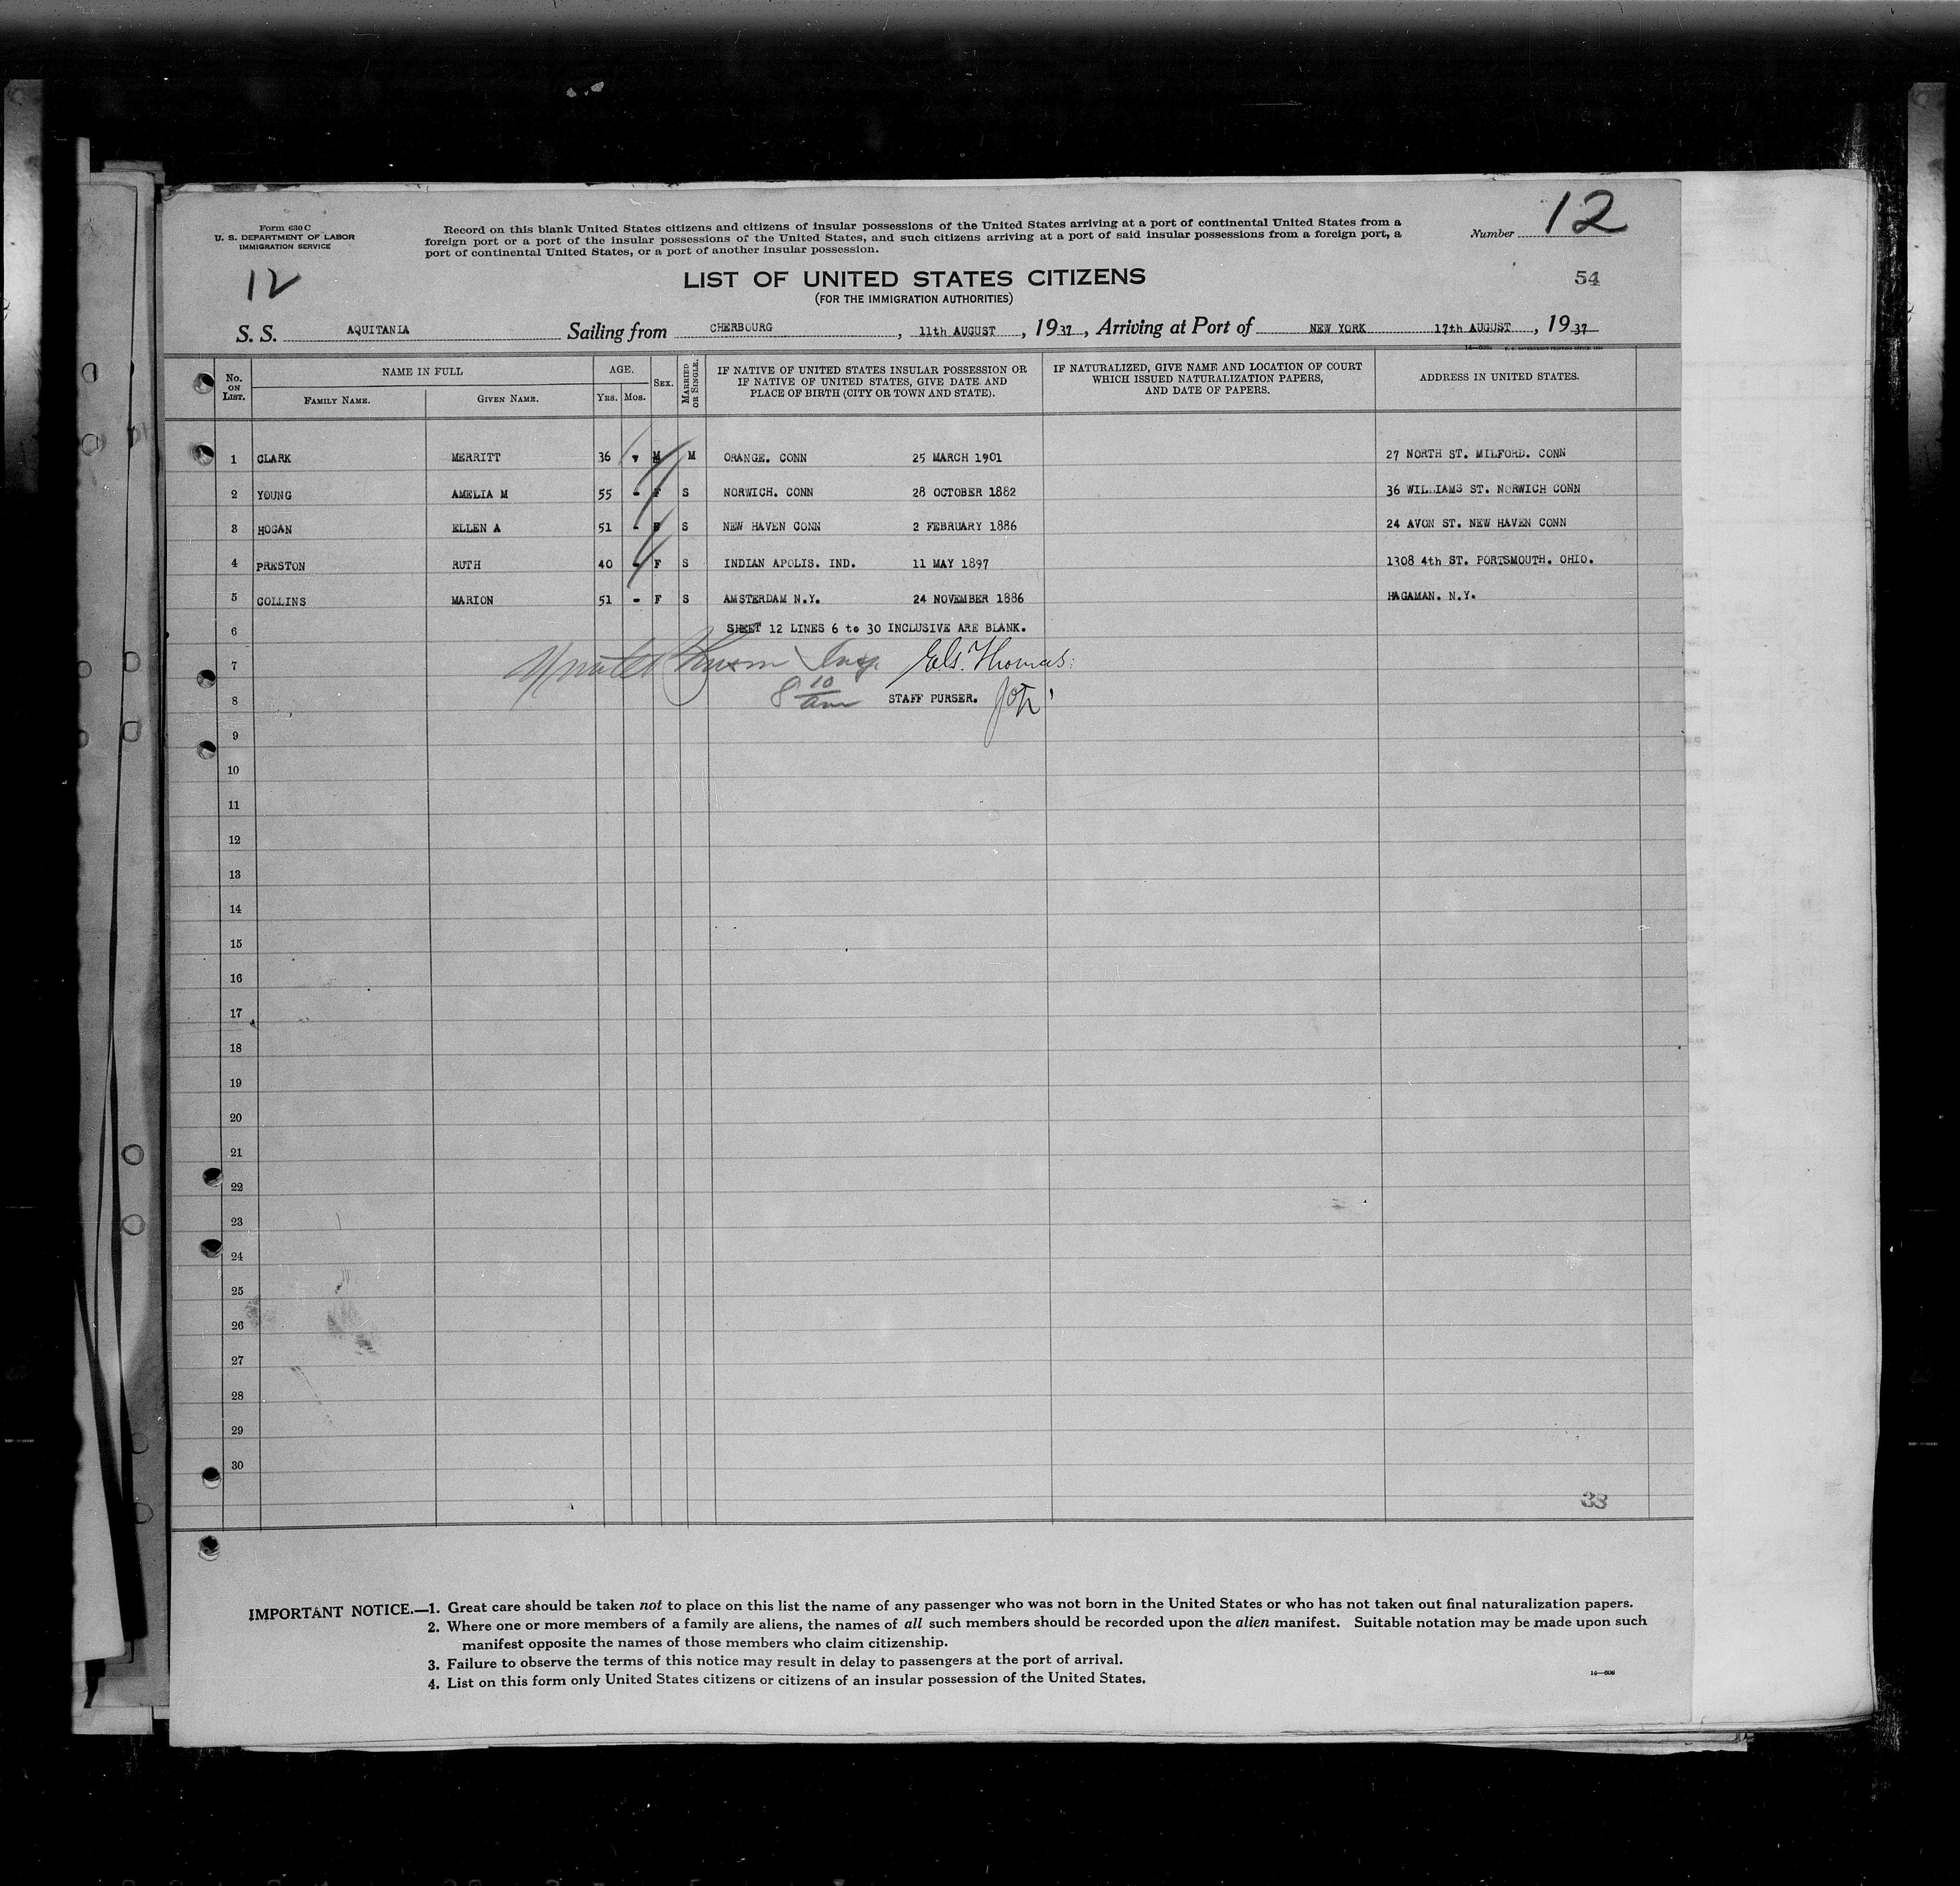 Form 630 C
U. S. DEPARTMENT OF LABOR
IMMIGRATION SERVICE
Record on this blank United States citizens and citizens of insular possessions of the United States arriving at a port of continental United States from a
foreign port or a port of the insular possessions of the United States, and such citizens arriving at a port of said insular possessions from a foreign port, a
port of continental United States, or a port of another insular possession.
Number 12
12
LIST OF UNITED STATES CITIZENS
(FOR THE IMMIGRATION AUTHORITIES)
54
S. S. AQUITANIA Sailing from CHERBOURG, 11th AUGUST, 1937, Arriving at Port of NEW YORK 17th AUGUST, 1937
No. ON LIST. NAME IN FULL AGE. SEX. MARRIED OR SINGLE. IF NATIVE OF UNITED STATES INSULAR POSSESSION OR IF NATIVE OF UNITED STATES, GIVE DATE AND PLACE OF BIRTH (CITY OR TOWN AND STATE). IF NATURALIZED, GIVE NAME AND LOCATION OF COURT WHICH ISSUED NATURALIZATION PAPERS, AND DATE OF PAPERS. ADDRESS IN UNITED STATES.
FAMILY NAME. GIVEN NAME. YRS. MOS.
1 CLARK MERRITT 36 M M ORANGE. CONN 25 MARCH 1901 27 NORTH ST. MILFORD. CONN
2 YOUNG AMELIA M 55 - F S NORWICH. CONN 28 OCTOBER 1882 36 WILLIAMS ST. NORWICH CONN
3 HOGAN ELLEN A 51 - F S NEW HAVEN CONN 2 FEBRUARY 1886 24 AVON ST. NEW HAVEN CONN
4 PRESTON RUTH 40 - F S INDIAN APOLIS. IND. 11 MAY 1897 1308 4th ST. PORTSMOUTH. OHIO.
5 COLLINS MARION 51 - F S AMSTERDAM N.Y. 24 NOVEMBER 1886 HAGAMAN. N.Y.
6 SHEET 12 LINES 6 to 30 INCLUSIVE ARE BLANK.
7 Insp. Thomas
8 8 10 am STAFF PURSER.
9
10
11
12
13
14
15
16
17
18
19
20
21
22
23
24
25
26
27
28
29
30
38
IMPORTANT NOTICE.—1. Great care should be taken not to place on this list the name of any passenger who was not born in the United States or who has not taken out final naturalization papers.
2. Where one or more members of a family are aliens, the names of all such members should be recorded upon the alien manifest. Suitable notation may be made upon such
manifest opposite the names of those members who claim citizenship.
3. Failure to observe the terms of this notice may result in delay to passengers at the port of arrival.
4. List on this form only United States citizens or citizens of an insular possession of the United States.